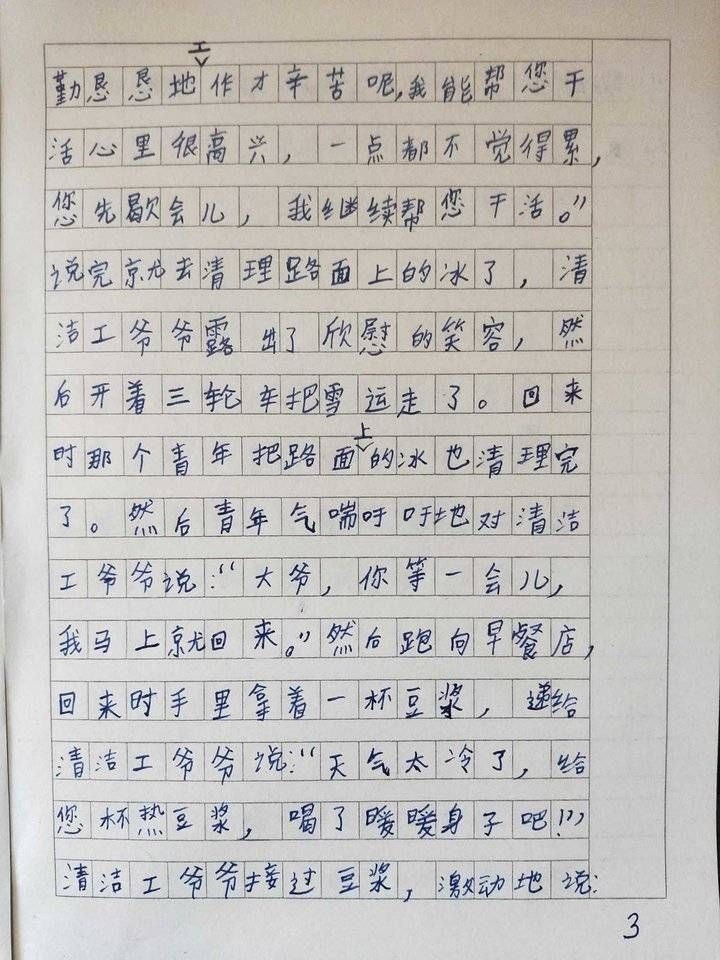 勤恳恳地工作才辛苦呢,我能帮您干
活心里很高兴，一点都不觉得累，
您先歇会儿，我继续帮您干活。”
说完就去清理路面上的冰了，清
洁工爷爷露出了欣慰的笑容，然
后开着三轮车把雪运走了。回来
时那个青年把路面上的冰也清理完
了。然后青年气喘吁吁地对清洁
工爷爷说：“大爷，你等一会儿，
我马上就回来。”然后跑向早餐店，
回来时手里拿着一杯豆浆，递给
清洁工爷爷说：“天气太冷了，给
您杯热豆浆，喝了暖暖身子吧！”
清洁工爷爷接过豆浆，激动地说：
3